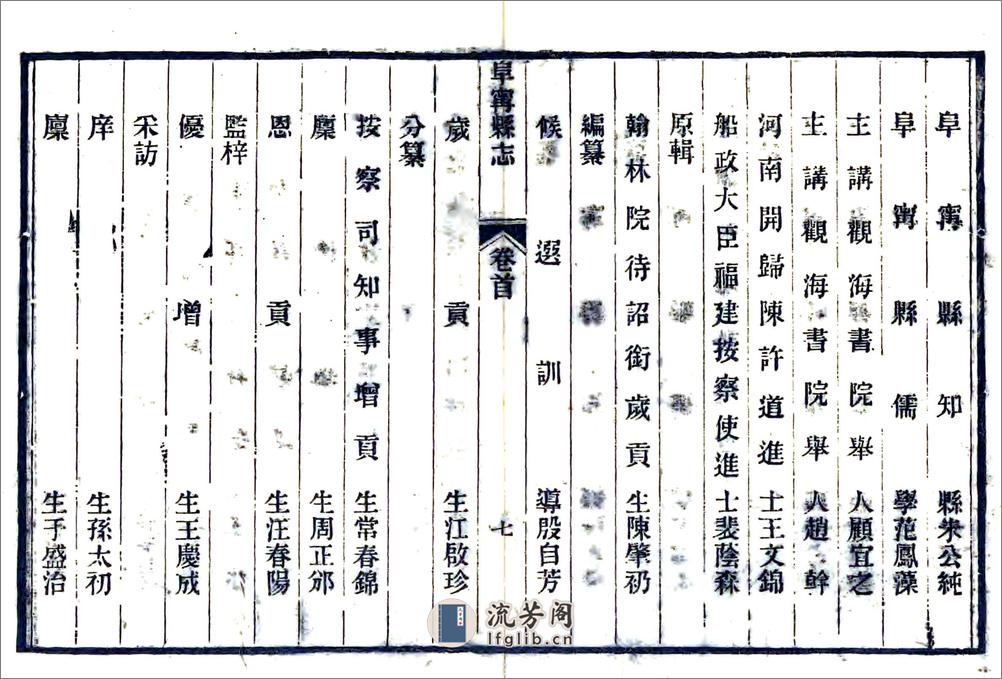 阜寧縣知縣朱公純
阜寧縣儒學范鳳藻
主講觀海書院舉人顧宜之
主講觀海書院舉人趙幹
河南開歸陳許道進士王文錦
船政大臣福建按察使進士裴蔭森
原輯
翰林院待詔銜歲貢生陳肇礽
編纂
候選訓導殷自芳
阜寧縣志 卷首 七
歲貢生江啟珍
分纂
按察司知事增貢生常春錦
廩生周正邠
恩貢生汪春陽
監梓
優增生王慶成
采訪
庠生孫太初
廩生于盛治
流芳阁
lfglib.cn